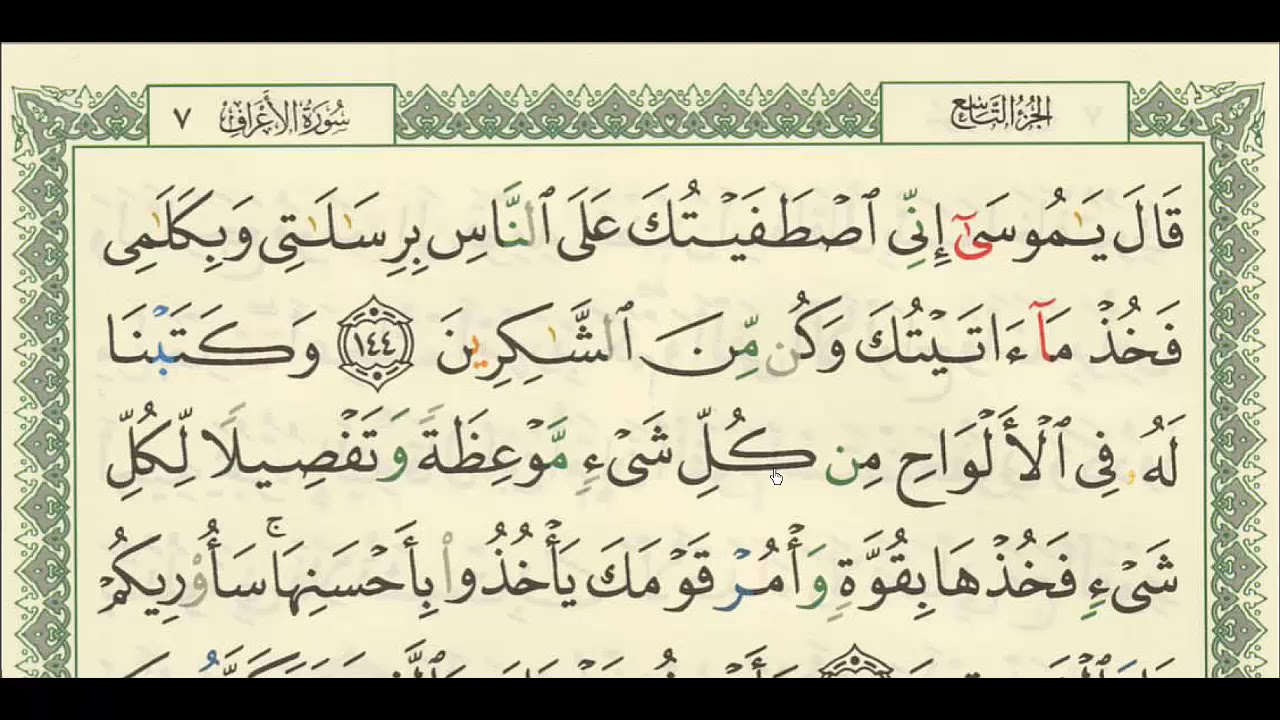 الجزء التاسع
سورة الأعراف ٧
قَالَ يَـٰمُوسَىٰٓ إِنِّى ٱصْطَفَيْتُكَ عَلَى ٱلنَّاسِ بِرِسَـٰلَـٰتِى وَبِكَلَـٰمِى
فَخُذْ مَآ ءَاتَيْتُكَ وَكُن مِّنَ ٱلشَّـٰكِرِينَ ١٤٤ وَكَتَبْنَا
لَهُۥ فِى ٱلْأَلْوَاحِ مِن كُلِّ شَىْءٍ مَّوْعِظَةً وَتَفْصِيلًا لِّكُلِّ
شَىْءٍ فَخُذْهَا بِقُوَّةٍ وَأْمُرْ قَوْمَكَ يَأْخُذُوا۟ بِأَحْسَنِهَا ۚ سَأُو۟رِيكُمْ